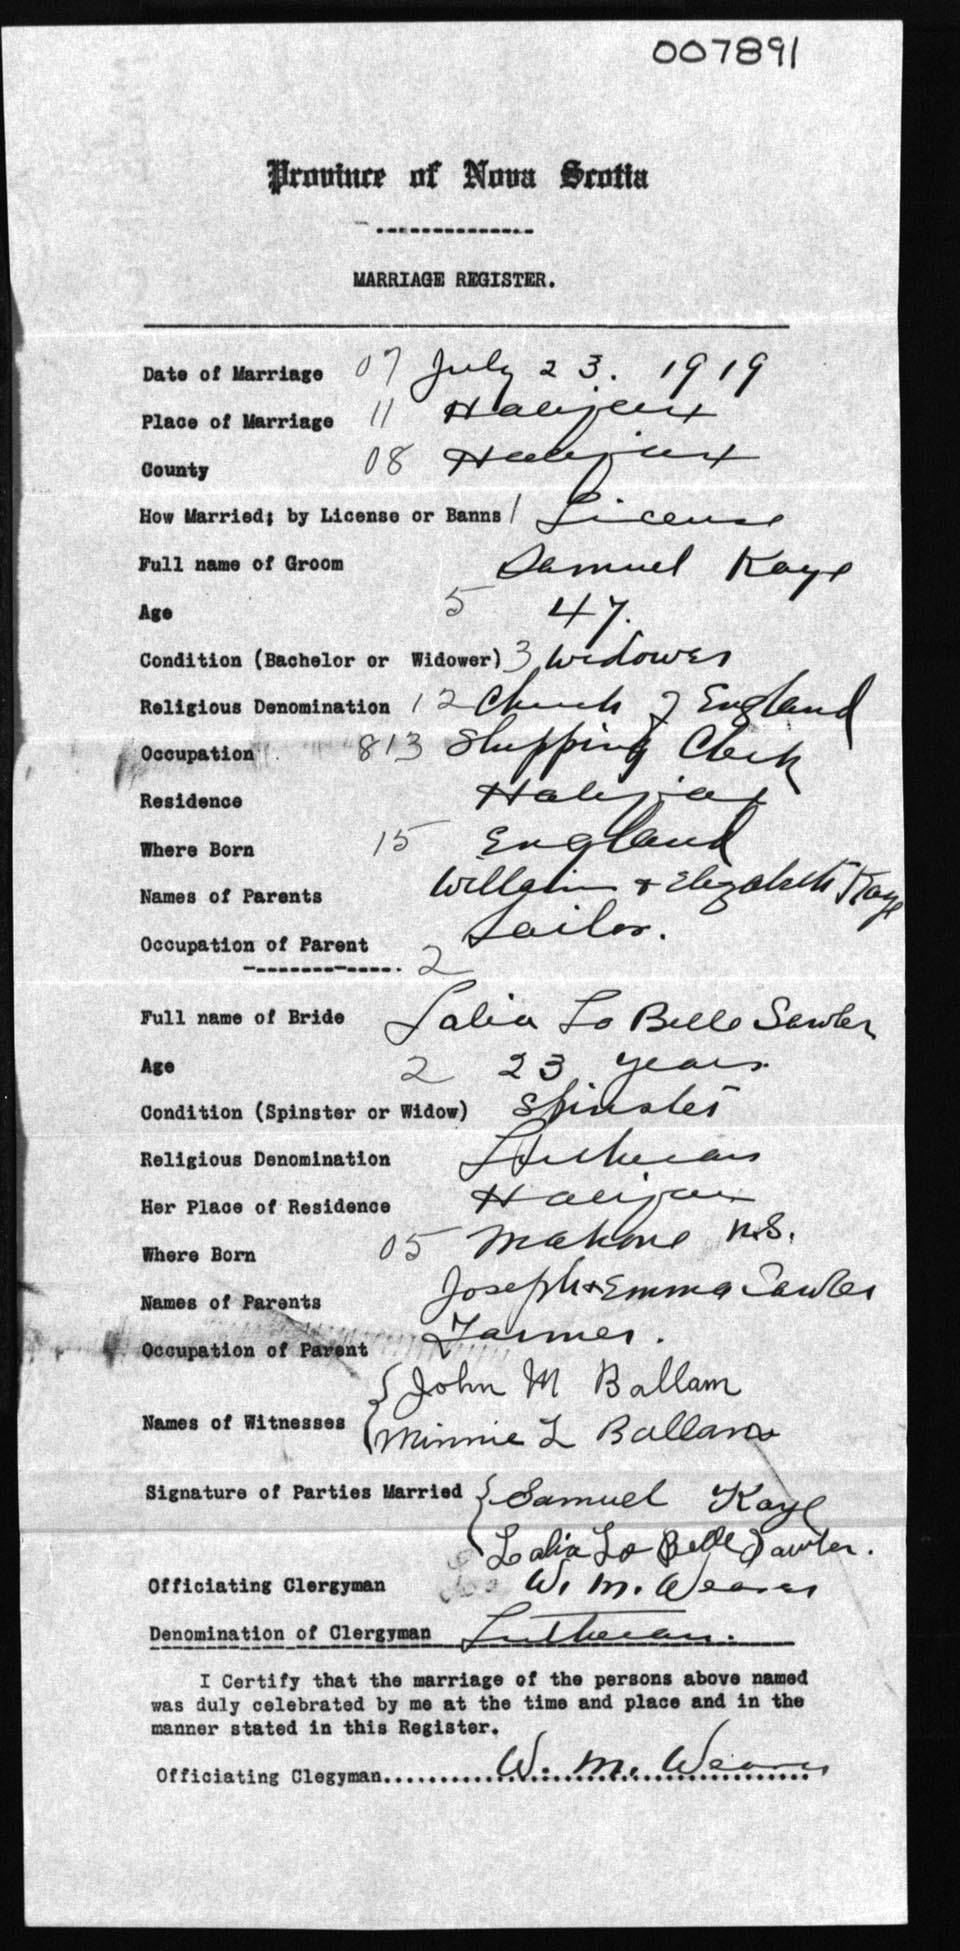 007891
Province of Nova Scotia
MARRIAGE REGISTER.
Date of Marriage 07 July 23. 1919
Place of Marriage 11 Halifax
County 08 Halifax
How Married; by License or Banns 1 License
Full name of Groom Samuel Kaye
Age 5 47.
Condition (Bachelor or Widower) 3 Widower
Religious Denomination 12 Church of England
Occupation 813 Shipping Clerk
Residence Halifax
Where Born 15 England
Names of Parents William + Elizabeth Kaye
Occupation of Parent Sailor.
2
Full name of Bride Lalia Lo Belle Sawler
Age 2 23 years.
Condition (Spinster or Widow) Spinster
Religious Denomination Lutheran
Her Place of Residence Halifax
Where Born 05 Mahone N.S.
Names of Parents Joseph + Emma Sawler
Occupation of Parent Farmer.
Names of Witnesses John M Ballam
Minnie L Ballam
Signature of Parties Married Samuel Kaye
Lalia Lo Belle Sawler.
Officiating Clergyman W. M. Weaver
Denomination of Clergyman Lutheran.
I Certify that the marriage of the persons above named
was duly celebrated by me at the time and place and in the
manner stated in this Register.
Officiating Clegyman W. M. Weaver